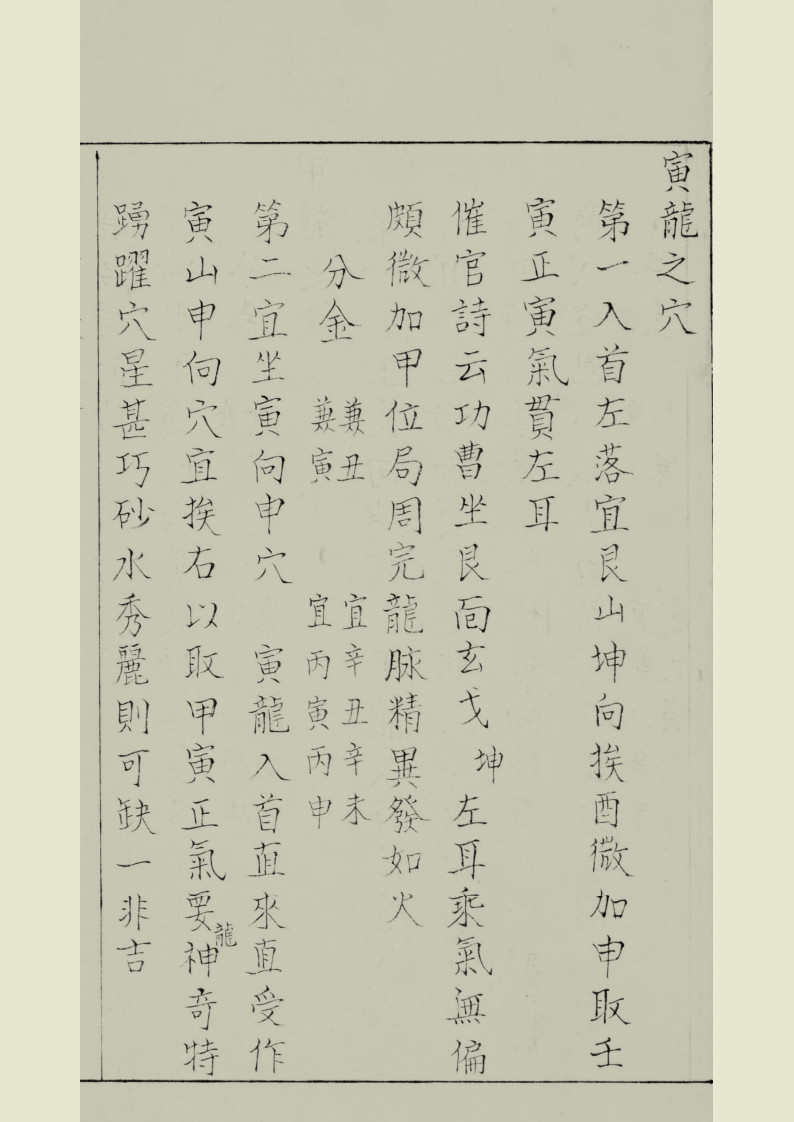 寅龍之穴
第一入首左落宜艮山坤向挨酉微加申取壬
寅正寅氣貫左耳
催官詩云功曹坐艮面玄戈坤左耳乘氣無偏
頗微加甲位局周完龍脉精異發如火
分金 兼丑 宜辛丑辛未
兼寅 宜丙寅丙申
第二宜坐寅向申穴 寅龍入首直來直受作
寅山申向穴宜挨右以取甲寅正氣要龍神奇特
踴躍穴星甚巧砂水秀麗則可缺一非吉